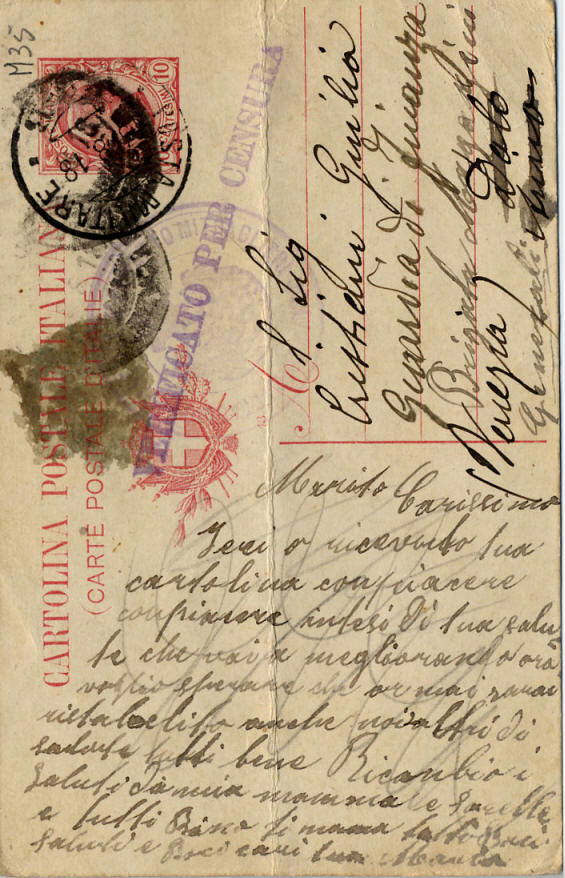 M35
10
POSTA MILITARE
CARTOLINA POSTALE ITALIANA
(CARTE POSTALE D'ITALIE)
VERIFICATO PER CENSURA
A
Sig
Cristiani Giulia
Guardia di Finanza
Brigata
Dolo
Venezia
Marito Carissimo
Ieri o ricevuto tua
cartolina conpiacere
conpiacere intesi di tua salu
te che vai a megliorando ora
voglio sperare che ormai sarai
ristabelito anche noialtri di
salute tutti bene Ricambio i
saluti da mia mamma le sorelle
e tutti Bino ti mama Baci
saluti e Baci cari tua Maria